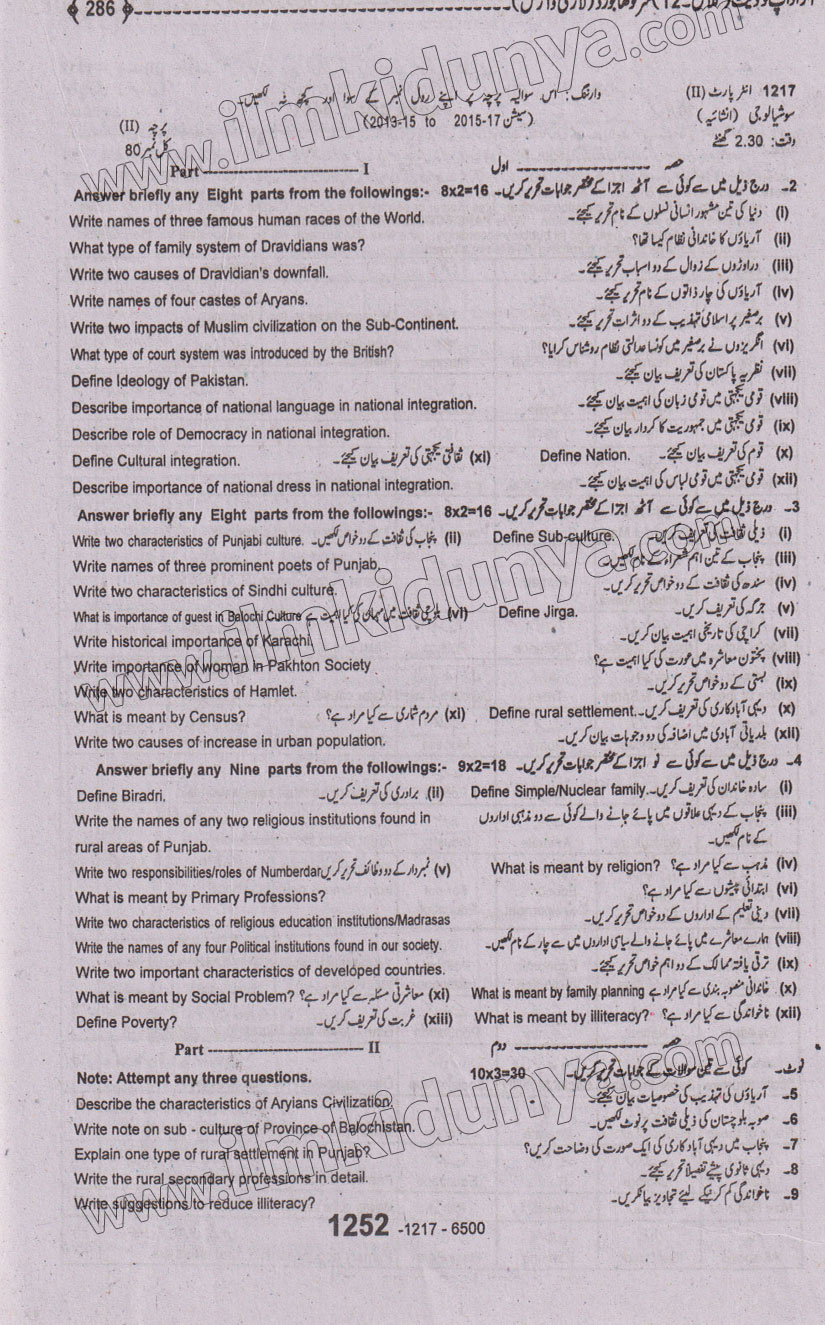 ﴾ 286 ﴿
1217 انٹر پارٹ (II) وارننگ: اس سوالیہ پرچہ پر اپنے رول نمبر کے سوا اور کچھ نہ لکھیں۔
سوشیالوجی (انشائیہ) (سیشن 2015-17 to 2013-15) پرچہ (II)
وقت: 2.30 گھنٹے کل نمبر 80
Part ---------------- I حصہ ---------------- اول
Answer briefly any Eight parts from the followings:- 8x2=16 2۔ درج ذیل میں سے کوئی سے آٹھ اجزا کے مختصر جوابات تحریر کریں۔
Write names of three famous human races of the World. (i) دنیا کی تین مشہور انسانی نسلوں کے نام تحریر کیجئے۔
What type of family system of Dravidians was? (ii) آریاؤں کا خاندانی نظام کیسا تھا؟
Write two causes of Dravidian's downfall. (iii) دراوڑوں کے زوال کے دو اسباب تحریر کیجئے۔
Write names of four castes of Aryans. (iv) آریاؤں کی چار ذاتوں کے نام تحریر کیجئے۔
Write two impacts of Muslim civilization on the Sub-Continent. (v) برصغیر پر اسلامی تہذیب کے دو اثرات تحریر کیجئے۔
What type of court system was introduced by the British? (vi) انگریزوں نے برصغیر میں کونسا عدالتی نظام روشناس کرایا؟
Define Ideology of Pakistan. (vii) نظریہ پاکستان کی تعریف بیان کیجئے۔
Describe importance of national language in national integration. (viii) قومی یکجہتی میں قومی زبان کی اہمیت بیان کیجئے۔
Describe role of Democracy in national integration. (ix) قومی یکجہتی میں جمہوریت کا کردار بیان کیجئے۔
Define Cultural integration. (xi) ثقافتی یکجہتی کی تعریف بیان کیجئے۔ Define Nation. (x) قوم کی تعریف بیان کیجئے۔
Describe importance of national dress in national integration. (xii) قومی یکجہتی میں قومی لباس کی اہمیت بیان کیجئے۔
Answer briefly any Eight parts from the followings:- 8x2=16 3۔ درج ذیل میں سے کوئی سے آٹھ اجزا کے مختصر جوابات تحریر کریں۔
Write two characteristics of Punjabi culture. (ii) پنجاب کی ثقافت کے دو خواص لکھیں۔ Define Sub-culture. (i) ذیلی ثقافت کی تعریف کریں۔
Write names of three prominent poets of Punjab. (iii) پنجاب کے تین اہم شعراء کے نام لکھیں۔
Write two characteristics of Sindhi culture. (iv) سندھ کی ثقافت کے دو خواص تحریر کریں۔
What is importance of guest in Balochi Culture (vi) بلوچی ثقافت میں مہمان کی کیا اہمیت ہے Define Jirga. (v) جرگہ کی تعریف کریں۔
Write historical importance of Karachi. (vii) کراچی کی تاریخی اہمیت بیان کریں۔
Write importance of woman in Pakhton Society (viii) پختون معاشرہ میں عورت کی کیا اہمیت ہے؟
Write two characteristics of Hamlet. (ix) بستی کے دو خواص تحریر کریں۔
What is meant by Census? (xi) مردم شماری سے کیا مراد ہے؟ Define rural settlement. (x) دیہی آبادکاری کی تعریف کریں۔
Write two causes of increase in urban population. (xii) بلدیاتی آبادی میں اضافہ کی دو وجوہات بیان کریں۔
Answer briefly any Nine parts from the followings:- 9x2=18 4۔ درج ذیل میں سے کوئی سے نو اجزا کے مختصر جوابات تحریر کریں۔
Define Biradri. (ii) برادری کی تعریف کریں۔ Define Simple/Nuclear family. (i) سادہ خاندان کی تعریف کریں۔
Write the names of any two religious institutions found in (iii) پنجاب کے دیہی علاقوں میں پائے جانے والے کوئی سے دو مذہبی اداروں
rural areas of Punjab. کے نام لکھیں۔
Write two responsibilities/roles of Numberdar (v) نمبردار کے دو وظائف تحریر کریں What is meant by religion? (iv) مذہب سے کیا مراد ہے؟
What is meant by Primary Professions? (vi) ابتدائی پیشوں سے کیا مراد ہے؟
Write two characteristics of religious education institutions/Madrasas (vii) دینی تعلیم کے اداروں کے دو خواص تحریر کریں۔
Write the names of any four Political institutions found in our society. (viii) ہمارے معاشرے میں پائے جانے والے سیاسی اداروں میں سے چار کے نام لکھیں۔
Write two important characteristics of developed countries. (ix) ترقی یافتہ ممالک کے دو اہم خواص تحریر کیجئے۔
What is meant by Social Problem? (xi) معاشرتی مسئلہ سے کیا مراد ہے؟ What is meant by family planning (x) خاندانی منصوبہ بندی سے کیا مراد ہے
Define Poverty? (xiii) غربت کی تعریف کریں۔ What is meant by illiteracy? (xii) ناخواندگی سے کیا مراد ہے؟
Part ---------------- II حصہ ---------------- دوم
Note: Attempt any three questions. 10x3=30 نوٹ۔ کوئی سے تین سوالات کے جوابات تحریر کریں۔
Describe the characteristics of Aryians Civilization. 5۔ آریاؤں کی تہذیب کی خصوصیات بیان کیجئے۔
Write note on sub - culture of Province of Balochistan. 6۔ صوبہ بلوچستان کی ذیلی ثقافت پر نوٹ لکھیں۔
Explain one type of rural settlement in Punjab? 7۔ پنجاب میں دیہی آبادکاری کی ایک صورت کی وضاحت کریں؟
Write the rural secondary professions in detail. 8۔ دیہی ثانوی پیشے تفصیلاً تحریر کیجئے۔
Write suggestions to reduce illiteracy? 9۔ ناخواندگی کم کرنیکے لیئے تجاویز بیان کریں۔
1252 -1217 - 6500
www.ilmkidunya.com
www.ilmkidunya.com
www.ilmkidunya.com